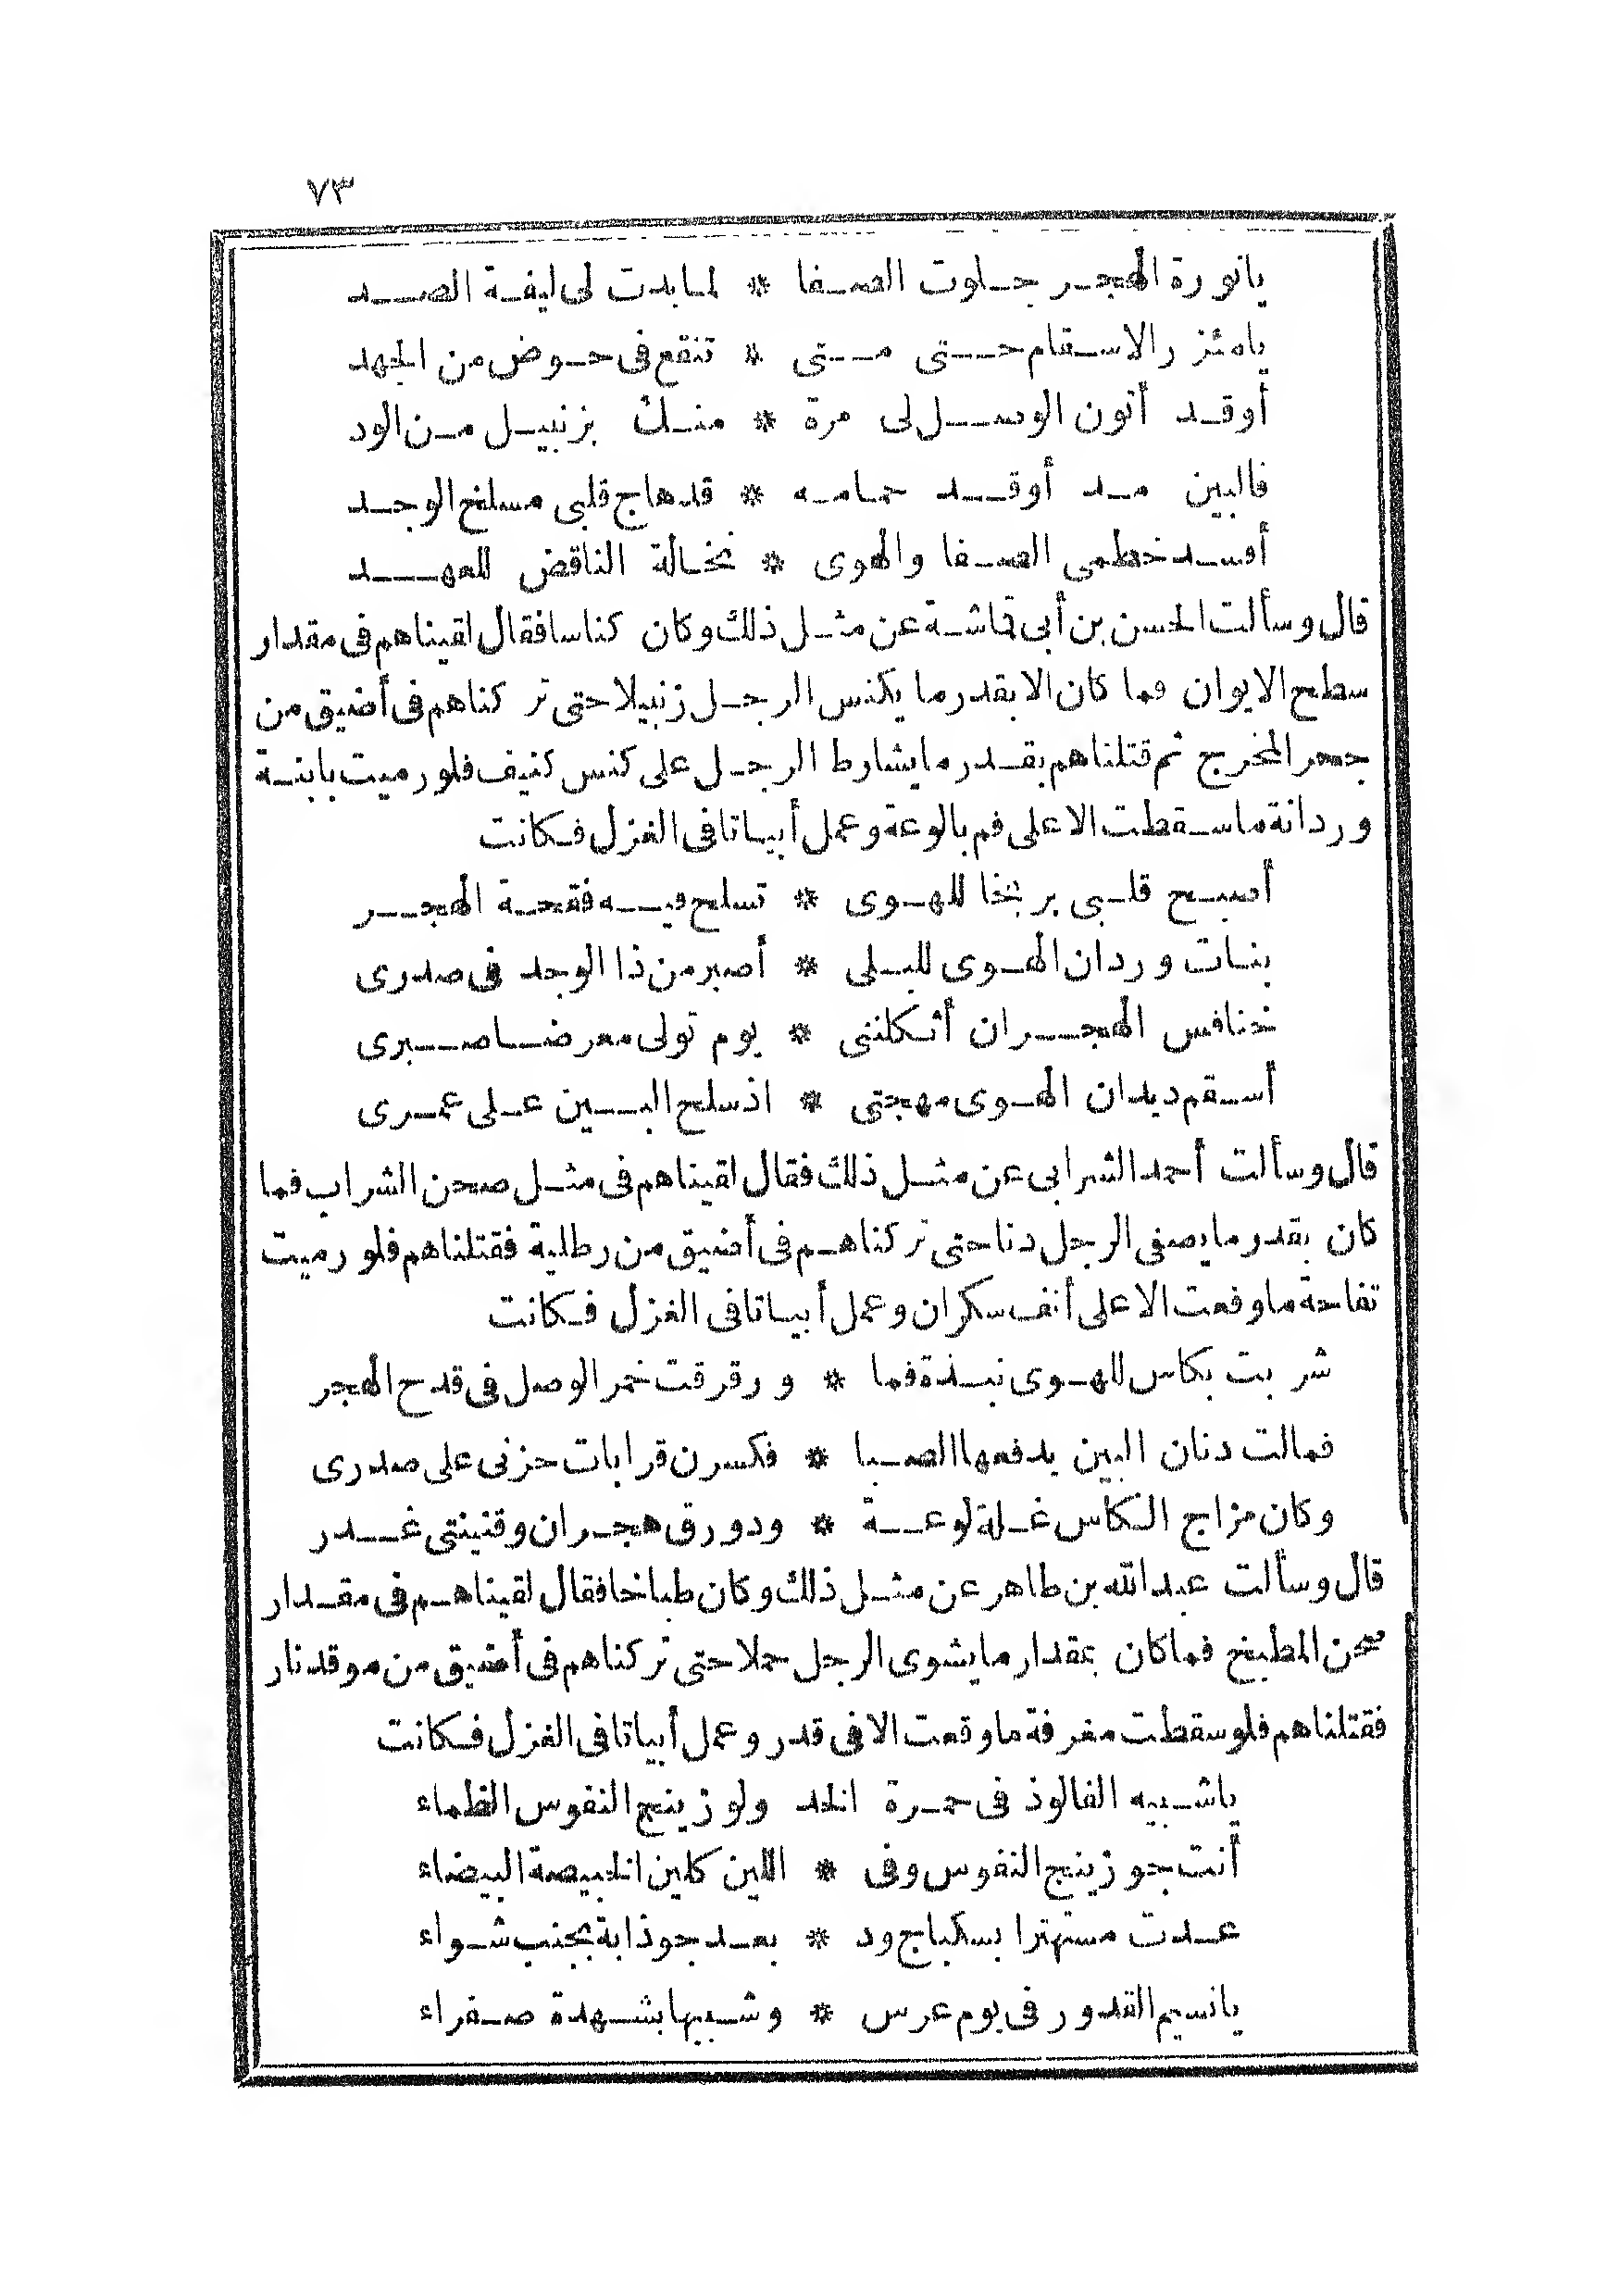 ٧٣
يانورة الهجر جلوت الصفا * لما بدت لى ليفة الصد
يامئزر الاسقام حتى متى * تنقع فى حوض من الجهد
أوقد أتون الوصل لى مرة * منك بزنبيل من الود
فالبين مد أوقد حمامه * قد هاج قلبى مسلخ الوجد
أفسد خطمى الصفا والهوى * نخالة الناقض للعهد
قال وسألت الحسن بن أبى قماشة عن مثل ذلك وكان كناسا فقال لقيناهم فى مقدار
سطح الايوان فما كان الا بقدر ما يكنس الرجل زنبيلا حتى تركناهم فى أضيق من
جحر المخرج ثم قتلناهم بقدر ما يشارط الرجل على كنس كنيف فلو رميت بابنة
وردانة ما سقطت الا على فم بالوعة وعمل أبياتا فى الغزل فكانت
أصبح قلبى بربخا للهوى * تسلح فيه فقحة الهجر
بنات وردان الهوى للبلى * أصبر من ذا الوجد فى صدرى
خنافس الهجران أثكلننى * يوم تولى معرضا صبرى
أسقم ديدان الهوى مهجتى * اذ سلح البين على عمرى
قال وسألت أحمد الشرابى عن مثل ذلك فقال لقيناهم فى مثل صحن الشراب فما
كان بقدر ما يصفى الرجل دنا حتى تركناهم فى أضيق من رطلية فقتلناهم فلو رميت
تفاحة ما وقعت الا على أنف سكران وعمل أبياتا فى الغزل فكانت
شربت بكاس للهوى نبذة فما * ورقرقت خمر الوصل فى قدح الهجر
فمالت دنان البين يدفعها الصبا * فكسرن قرابات حزنى على صدرى
وكان مزاج الكاس غلة لوعة * ودورق هجران وقنينتى غدر
قال وسألت عبد الله بن طاهر عن مثل ذلك وكان طباخا فقال لقيناهم فى مقدار
صحن المطبخ فما كان بمقدار ما يشوى الرجل حملا حتى تركناهم فى أضيق من موقد نار
فقتلناهم فلو سقطت مغرفة ما وقعت الا فى قدر وعمل أبياتا فى الغزل فكانت
ياشبيه الفالوذ فى حمرة الخد ولوزينج النفوس الظماء
أنت جوزينج النفوس وفى * اللين كلين الخبيصة البيضاء
عدت مستهترا بسكباج ود * بعد جوذابة بجنب شواء
يانسيم القدور فى يوم عرس * وشبيها بشهدة صفراء